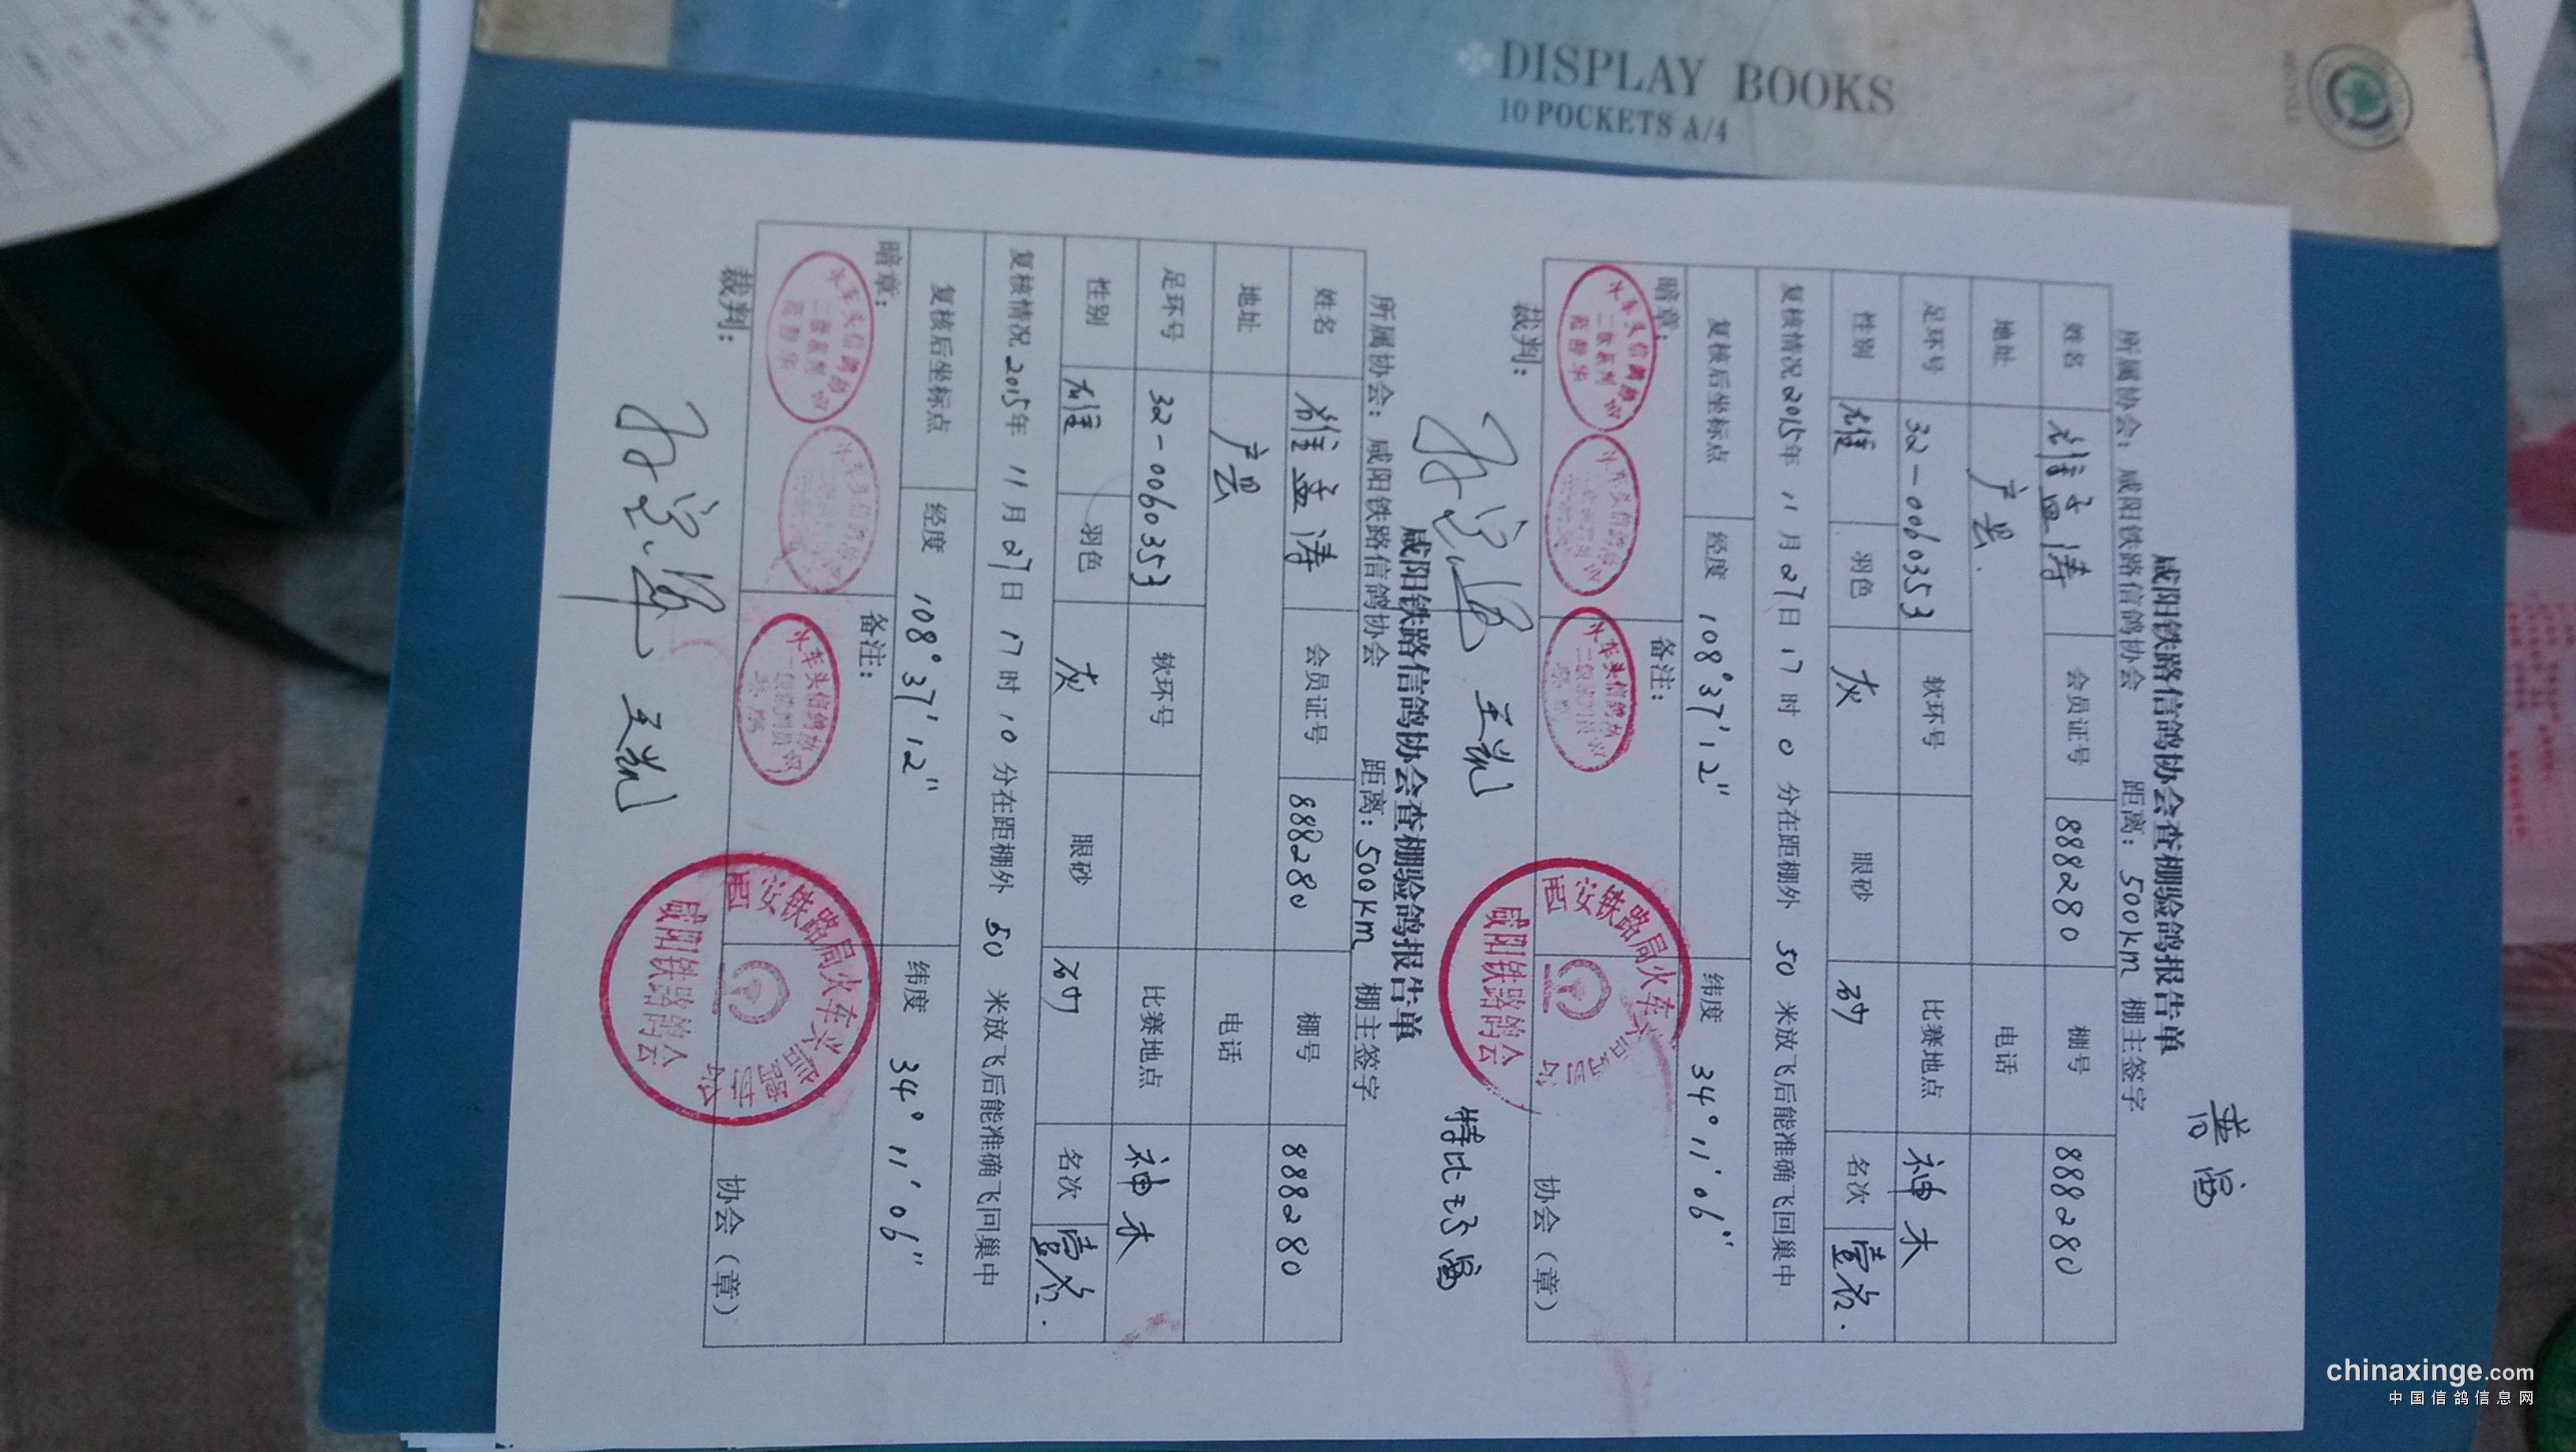 DISPLAY BOOKS
10 POCKETS A/4
普
咸阳铁路信鸽协会查棚验鸽报告单
所属协会：咸阳铁路信鸽协会 距离：500km 棚主签字
姓名 孟涛 会员证号 888280 棚号 888280
地址 电话
足环号 32-0060353 软环号 比赛地点 神木
性别 雄 羽色 灰 眼砂 砂 名次 壹名.
复核情况 2015年 11月 27日 17时 0分在距棚外 50 米放飞后能准确飞回巢中
复核后坐标点 经度 108°37'12" 纬度 34°11'06"
暗章： 备注：
火车头信鸽协会
二级裁判
火车头信鸽协
火车头信鸽协
西安铁路局火车头信鸽协会
咸阳铁路鸽会
协会（章）
裁判： 王凯
特比
咸阳铁路信鸽协会查棚验鸽报告单
所属协会：咸阳铁路信鸽协会 距离：500km 棚主签字
姓名 孟涛 会员证号 888280 棚号 888280
地址 电话
足环号 32-0060353 软环号 比赛地点 神木
性别 雄 羽色 灰 眼砂 砂 名次 壹名.
复核情况 2015年 11月 27日 17时 10分在距棚外 50 米放飞后能准确飞回巢中
复核后坐标点 经度 108°37'12" 纬度 34°11'06"
暗章： 备注：
火车头信鸽协会
二级裁判
火车头信鸽协
火车头信鸽协
西安铁路局火车头信鸽协会
咸阳铁路鸽会
协会（章）
裁判： 王凯
chinaxinge.com
中国信鸽信息网